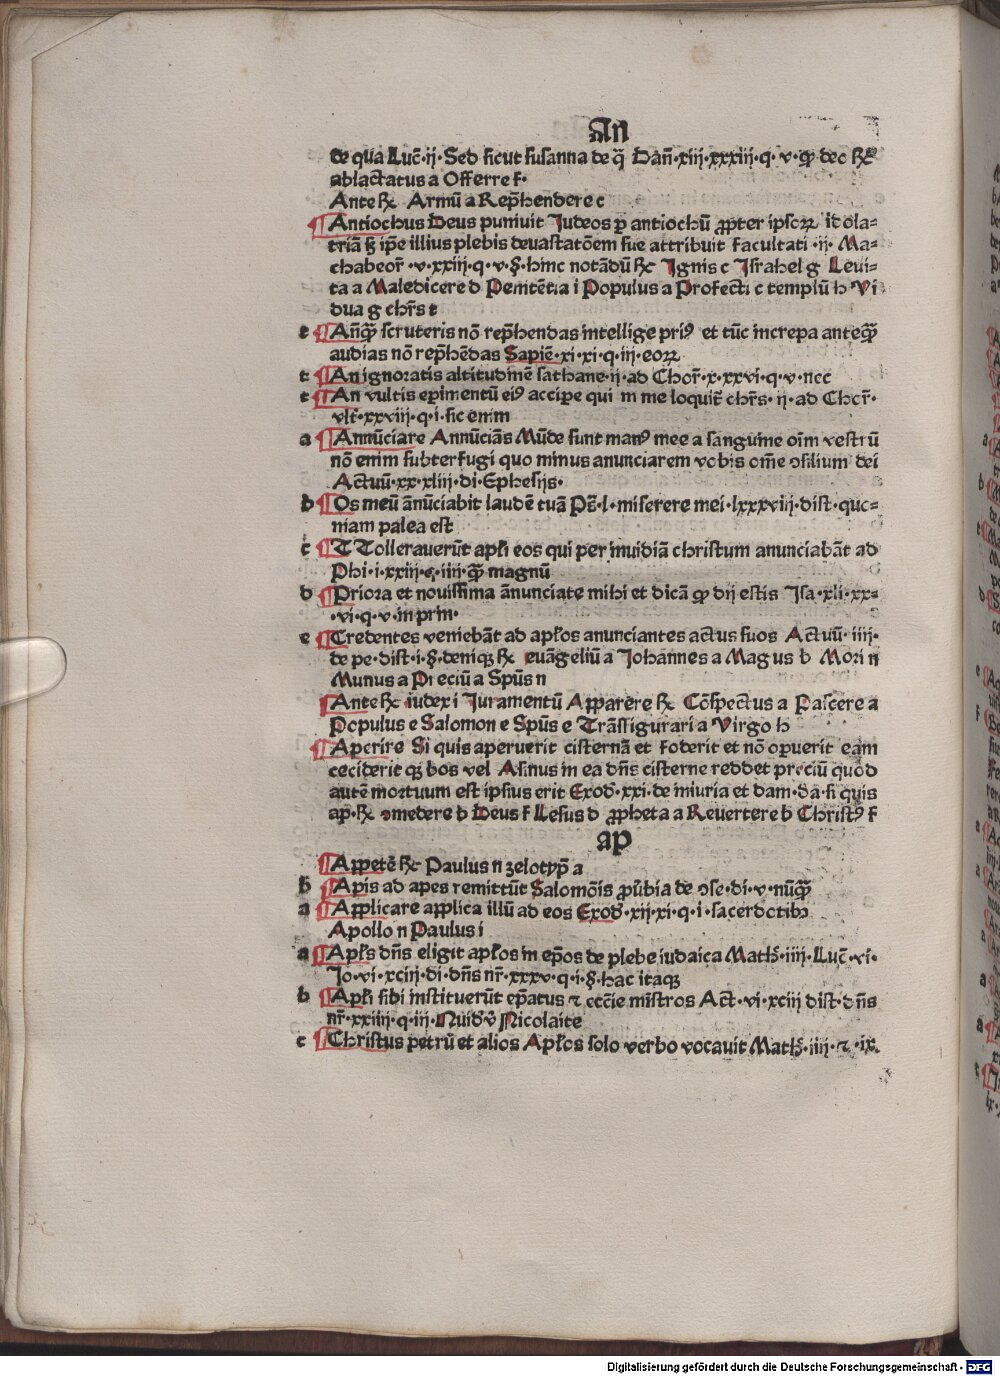 An
de qua Luc̄·ii· Sed sicut susanna de q̄ Dan̄·xiij·xxxiij·q·v·ꝙ deo R̄
ablactatus a Offerre f·
Ante R̄ Armū a Rep̄hendere c
¶Antiochus Deus puniuit Iudeos p̄ antiochū ꝓpter ipsoꝝ idola-
triā ſʒ ip̄e illius plebis deuastatōem sue attribuit facultati ·ii· Ma-
chabeor̄ ·v·xxiij·q·v·§·hinc notādū R̄ Ignis c Israhel g Leui-
ta a Maledicere d Penitētia i Populus a Profecti c templū h Vi
dua g chr̄s t
e ¶An̄ꝙ̄ scruteris nō rep̄hendas intellige priꝰ et tūc increpa anteꝙ̄
audias nō rep̄hēdas Sapiē·xi·xi·q·iij·eoꝝ
t ¶An ignoratis altitudinē sathane·ij·ad Chor̄·x·xxvi·q·v·nec
e ¶An vultis epimentū eiꝰ accipe qui in me loquit̄ chr̄s· ij·ad Chor̄·
vlt̄·xxviij·q·i·sic enim
a ¶Annūciare Annūciās Mūde sunt manꝰ mee a sanguine oīm vestrū
nō enim subterfugi quo minus anunciarem vobis om̄e ↄsilium dei
Actuū·xx·xliij·di·Ephesijs·
b ¶Os meū ānūciabit laudē tuā Ps̄·l·miserere mei·lxxxviij·dist·quo-
niam palea est
c ¶T Tollerauerūt apl̄i eos qui per inuidiā christum anunciabāt ad
Phi·i·xxiij·q·iiij·ꝙ̄ magnū
d ¶Priora et nouissima ānunciate mihi et dicā ꝙ dij estis Isa·xli·xx-
·vi·q·v·in prin·
e ¶Credentes veniebāt ad apl̄os anunciantes actus suos Actuū· iiij·
de pe·dist·i·§·deniqꝫ R̄ euāgeliū a Iohannes a Magus b Mori n
Munus a Preciū a Sp̄us n
¶Ante R̄ iudex i Iuramentū Apparere R̄ Cōspectus a Pascere a
Populus e Salomon e Sp̄us e Trāsfigurari a Virgo h
¶Aperire Si quis aperuerit cisternā et foderit et nō operuerit eam
ceciderit qꝫ bos vel Asinus in ea dn̄s cisterne reddet preciū quod
autē mortuum est ipsius erit Exod·xxi·de iniuria et dam·dā·si quis
ap·R̄ ↄmedere b Deus f Lesus d ꝓpheta a Reuertere b Christꝰ f
ap
¶Appetē R̄ Paulus n zelotyp̄ a
b ¶Apis ad apes remittūt Salomōis ꝓūbia de ↄse·di·v·nūꝙ̄
a ¶Applicare applica illū ad eos Exod·xij·xi·q·i·sacerdotibꝫ
Apollo n Paulus i
a ¶Apl̄s dn̄s eligit apl̄os in ep̄os de plebe iudaica Math̄·iiij·Luc̄·vi·
Io·vi·xciij·di·dn̄s nr̄·xxxv·q·i·§·hac itaqꝫ
b ¶Apl̄i sibi instituerūt ep̄atus ⁊ ecc̄ie mīstros Act·vi·xciij dist·dn̄s
nr̄·xxiiij·q·iij·Quidꝰ Nicolaite
c ¶Christus petrū et alios Apl̄os solo verbo vocauit Math̄·iiij·⁊·ix
Digitalisierung gefördert durch die Deutsche Forschungsgemeinschaft - DFG